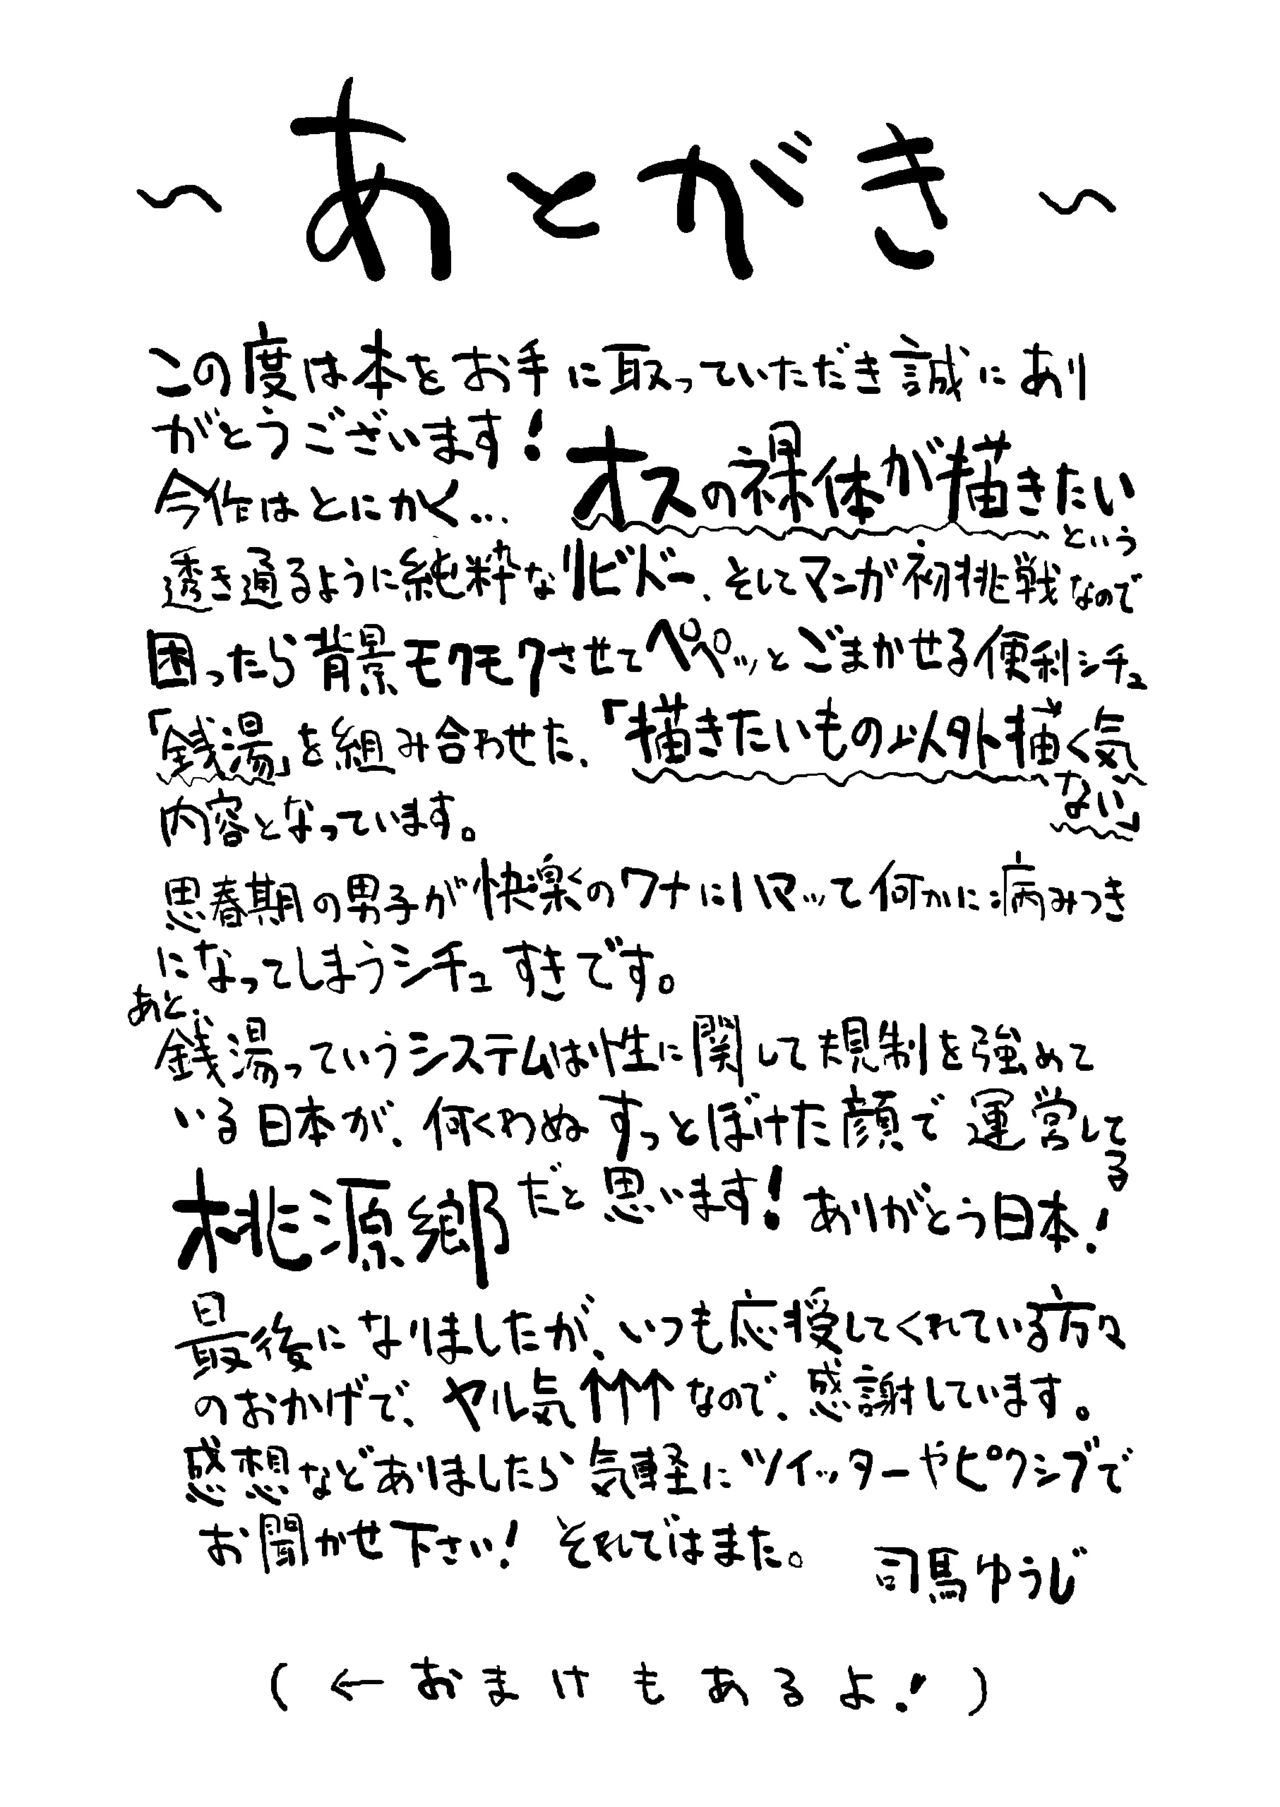 ～あとがき～
この度は本をお手に取っていただき誠にあり
がとうございます！
今作はとにかく… オスの裸体が描きたい
という
透き通るように純粋なリビドー、そしてマンガ初挑戦なので
困ったら背景モクモクさせてペペッとごまかせる便利シチュ
「銭湯」を組み合わせた、「描きたいもの以外描く気
ない」
内容となっています。
思春期の男子が快楽のワナにハマって何かに病みつき
になってしまうシチュすきです。
あと、
銭湯っていうシステムは性に関して規制を強めて
いる日本が、何くわぬすっとぼけた顔で運営して
る
桃源郷だと思います！ありがとう日本！
最後になりましたが、いつも応援してくれている方々
のおかげで、ヤル気↑↑↑なので、感謝しています。
感想などありましたら気軽にツイッターやピクシブで
お聞かせ下さい！それではまた。
司馬ゆうじ
（←おまけもあるよ！）